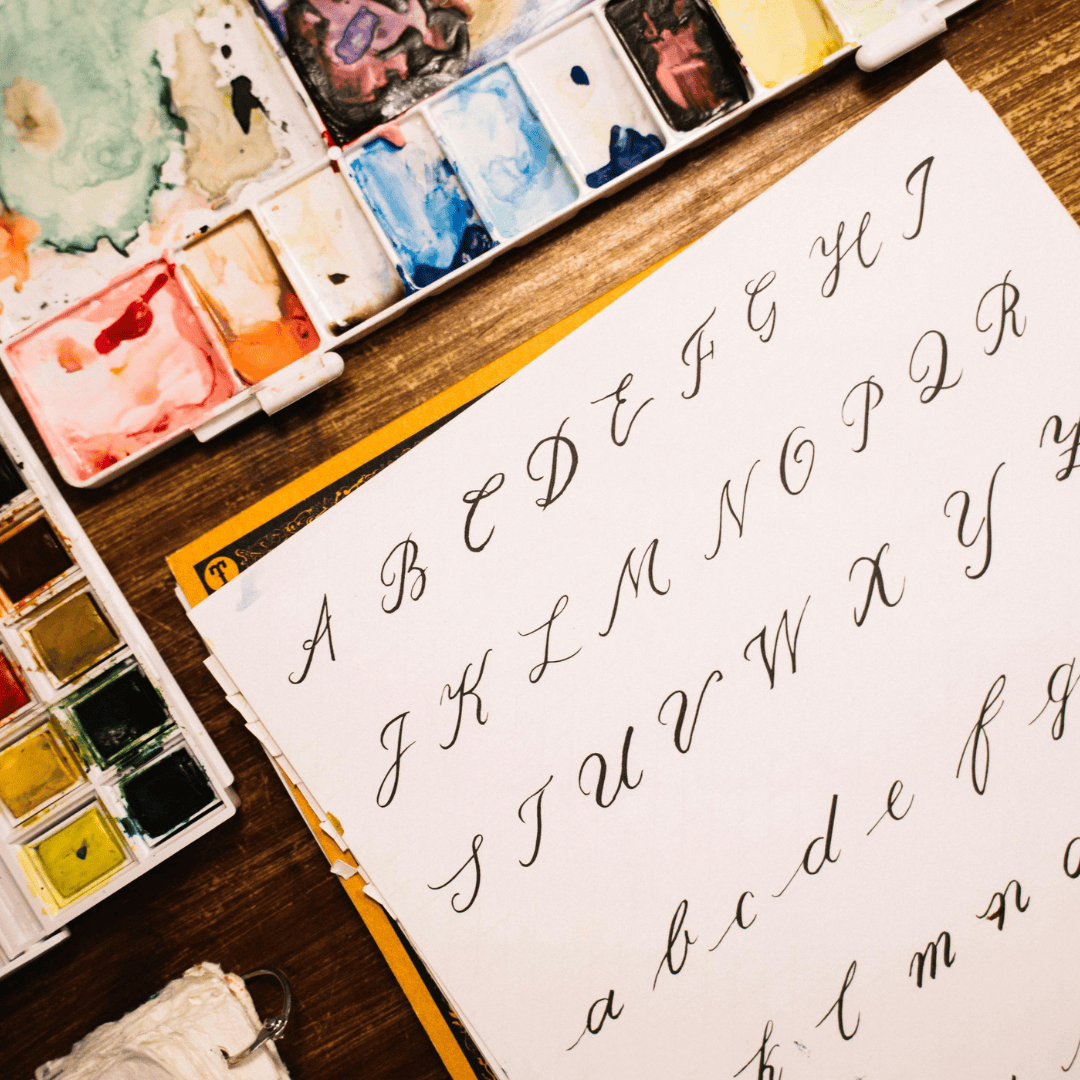 A B C D E F G H I
J K L M N O P Q R
S T U V W X Y
a b c d e f g
k l m n
T